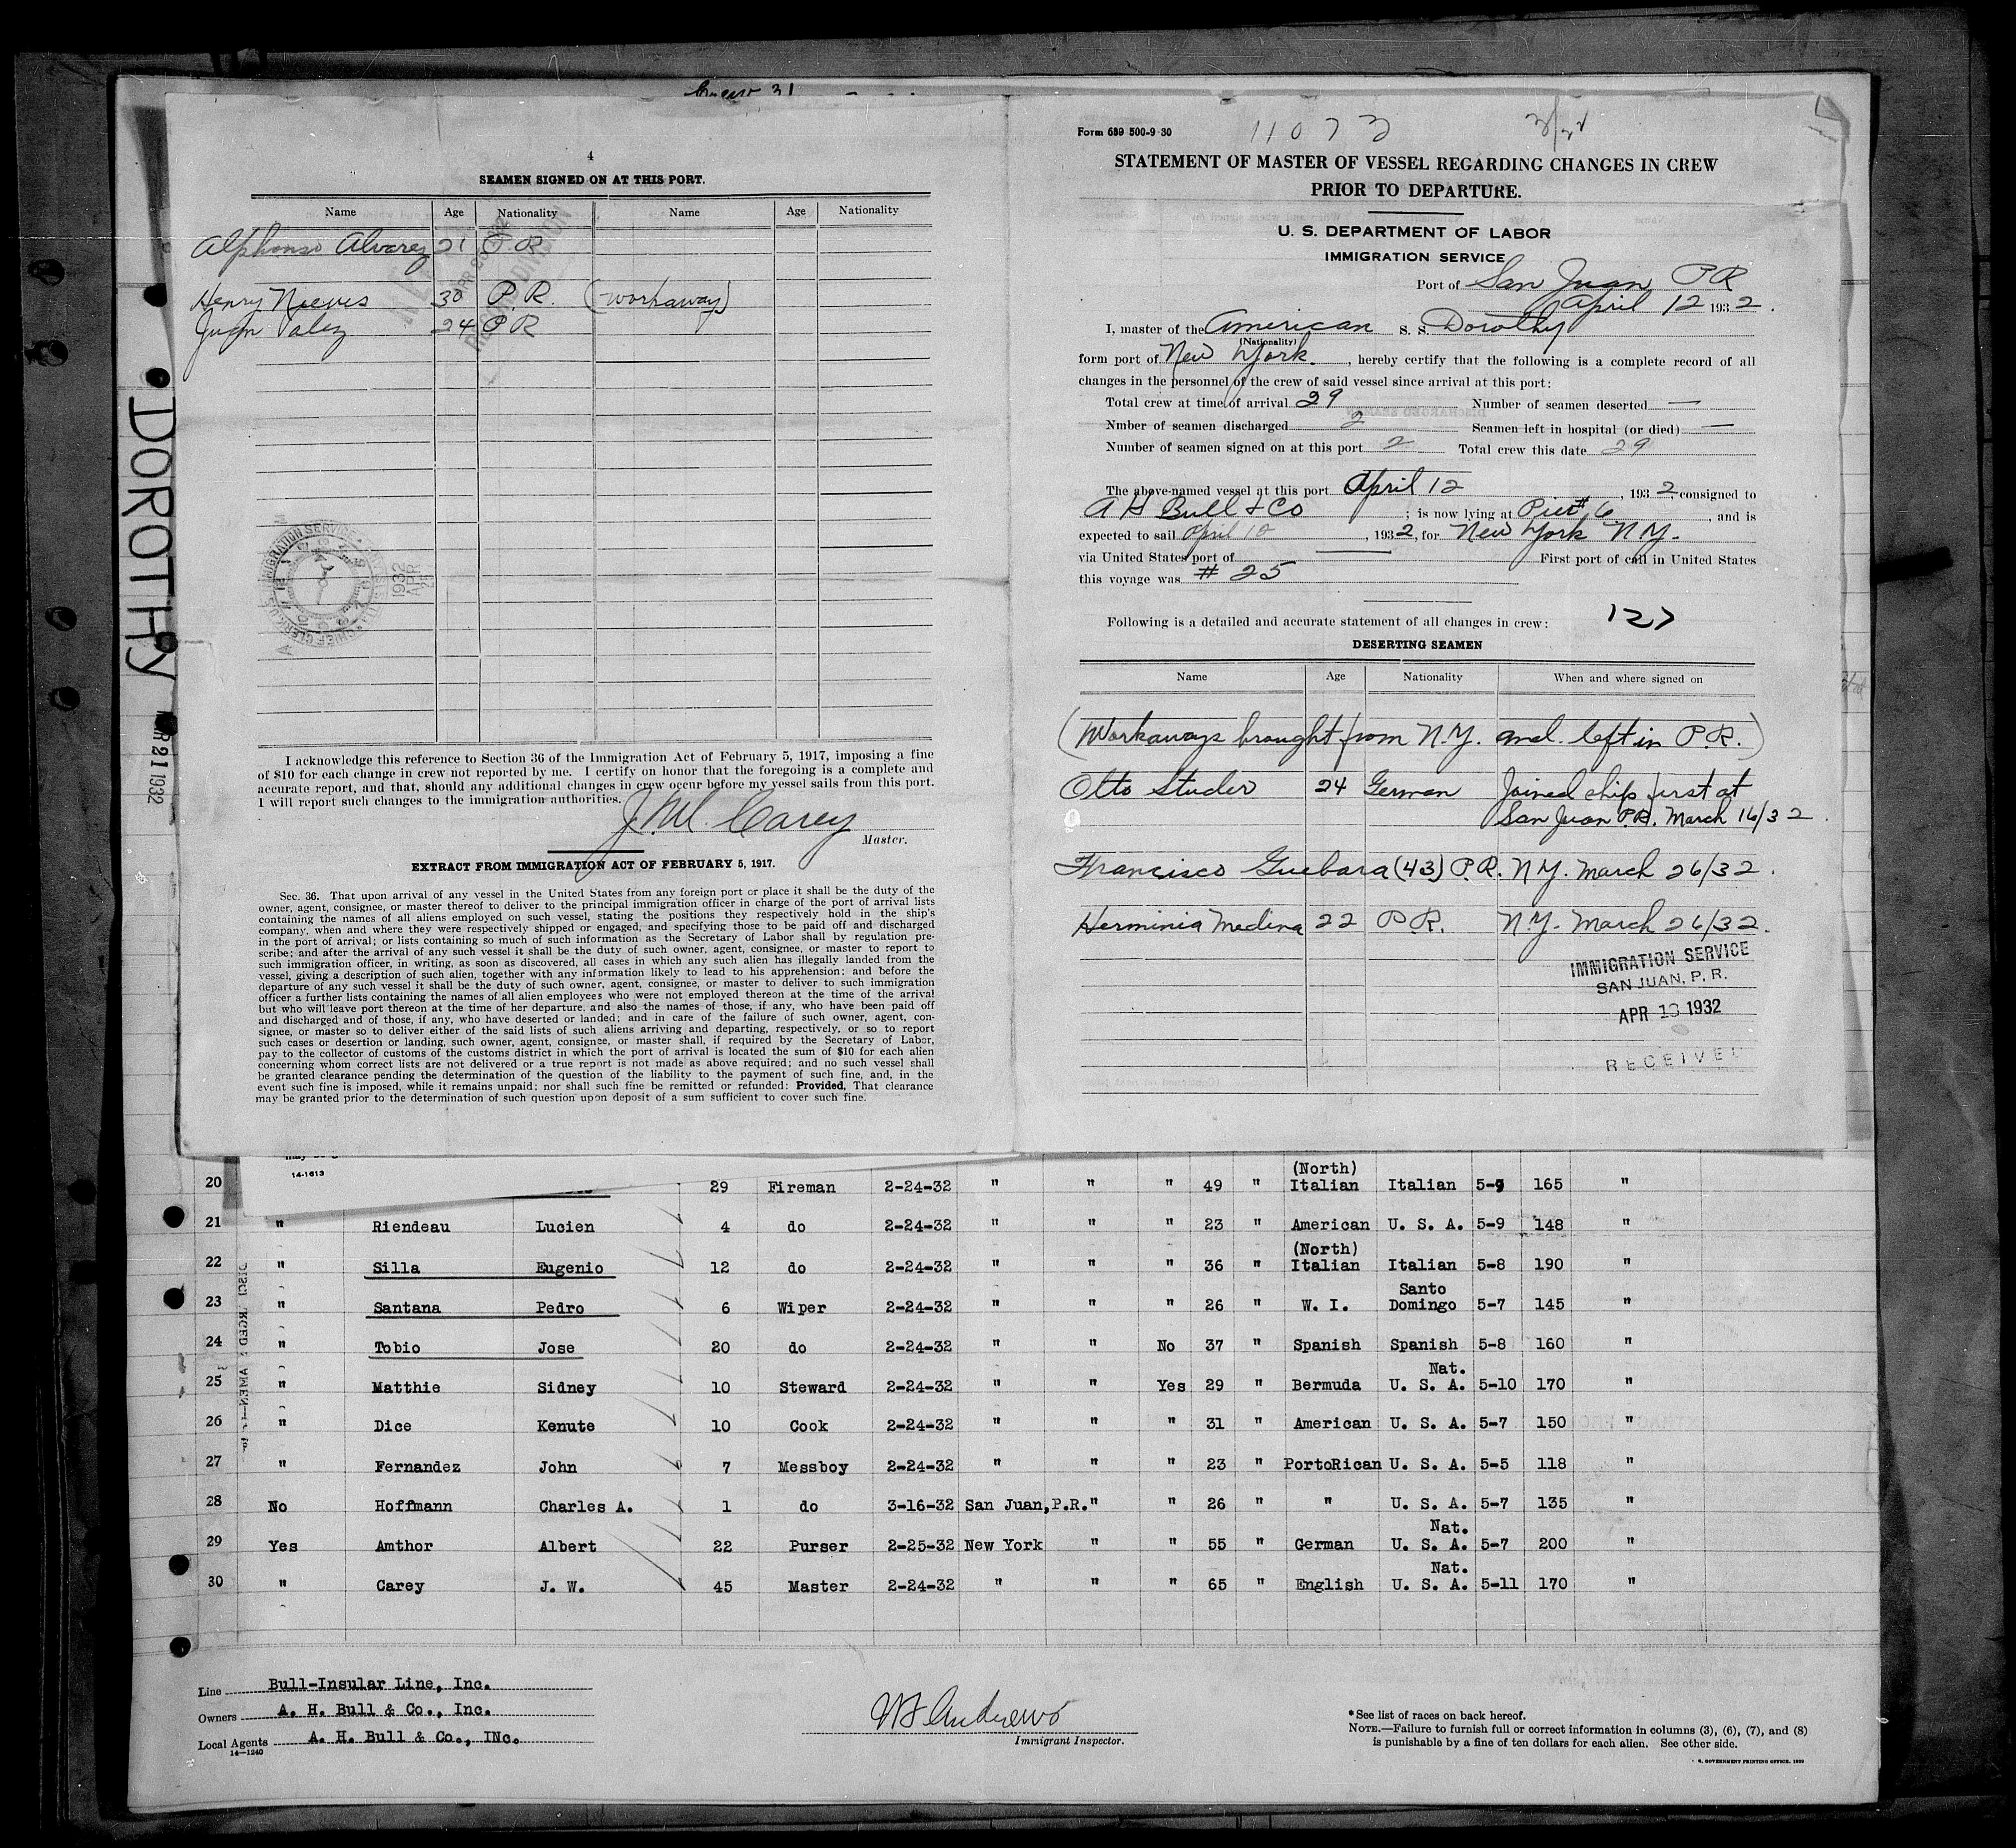 4
SEAMEN SIGNED ON AT THIS PORT.
Name Age Nationality Name Age Nationality
Alphonso Alvarez 21 P.R.
Henry Nieves 30 P.R. (workaway)
Juan Valez 24 P.R
I acknowledge this reference to Section 36 of the Immigration Act of February 5, 1917, imposing a fine
of $10 for each change in crew not reported by me. I certify on honor that the foregoing is a complete and
accurate report, and that, should any additional changes in crew occur before my vessel sails from this port.
I will report such changes to the immigration authorities.
J. W. Carey
Master.
EXTRACT FROM IMMIGRATION ACT OF FEBRUARY 5, 1917.
Sec. 36. That upon arrival of any vessel in the United States from any foreign port or place it shall be the duty of the
owner, agent, consignee, or master thereof to deliver to the principal immigration officer in charge of the port of arrival lists
containing the names of all aliens employed on such vessel, stating the positions they respectively hold in the ship's
company, when and where they were respectively shipped or engaged, and specifying those to be paid off and discharged
in the port of arrival; or lists containing so much of such information as the Secretary of Labor shall by regulation pre-
scribe; and after the arrival of any such vessel it shall be the duty of such owner, agent, consignee, or master to report to
such immigration officer, in writing, as soon as discovered, all cases in which any such alien has illegally landed from the
vessel, giving a description of such alien, together with any information likely to lead to his apprehension; and before the
departure of any such vessel it shall be the duty of such owner, agent, consignee, or master to deliver to such immigration
officer a further lists containing the names of all alien employees who were not employed thereon at the time of the arrival
but who will leave port thereon at the time of her departure, and also the names of those, if any, who have been paid off
and discharged and of those, if any, who have deserted or landed; and in care of the failure of such owner, agent, con-
signee, or master so to deliver either of the said lists of such aliens arriving and departing, respectively, or so to report
such cases or desertion or landing, such owner, agent, consignee, or master shall, if required by the Secretary of Labor,
pay to the collector of customs of the customs district in which the port of arrival is located the sum of $10 for each alien
concerning whom correct lists are not delivered or a true report is not made as above required; and no such vessel shall
be granted clearance pending the determination of the question of the liability to the payment of such fine, and, in the
event such fine is imposed, while it remains unpaid; nor shall such fine be remitted or refunded: Provided, That clearance
may be granted prior to the determination of such question upon deposit of a sum sufficient to cover such fine.
DOROTHY
MAR 21 1932
1932
APR
25
Form 689 500-9-30
11073
STATEMENT OF MASTER OF VESSEL REGARDING CHANGES IN CREW
PRIOR TO DEPARTURE.
U. S. DEPARTMENT OF LABOR
IMMIGRATION SERVICE
Port of San Juan PR
April 12 1932.
I, master of the American S. S. Dorothy
(Nationality)
form port of New York, hereby certify that the following is a complete record of all
changes in the personnel of the crew of said vessel since arrival at this port:
Total crew at time of arrival 29 Number of seamen deserted —
Nmber of seamen discharged 2 Seamen left in hospital (or died) —
Number of seamen signed on at this port 2 Total crew this date 29
The above-named vessel at this port April 12, 1932 consigned to
A H Bull & Co; is now lying at Pier # 6, and is
expected to sail April 12, 1932, for New York N.Y.
via United States port of — First port of call in United States
this voyage was # 25
Following is a detailed and accurate statement of all changes in crew: 127
DESERTING SEAMEN
Name Age Nationality When and where signed on
(Workaways brought from N.Y. and left in P.R.)
Otto Studer 24 German Joined ship first at
San Juan P.R. March 16/32.
Francisco Guebara (43) P.R. N.Y. March 26/32.
Herminia Medina 22 P R. N.Y. March 26/32.
IMMIGRATION SERVICE
SAN JUAN, P. R.
APR 13 1932
RECEIVED
14-1613
20 29 Fireman 2-24-32 " " " 49 " (North) Italian Italian 5-9 165 "
21 " Riendeau Lucien 4 do 2-24-32 " " " 23 " American U. S. A. 5-9 148 "
22 " Silla Eugenio 12 do 2-24-32 " " " 36 " (North) Italian Italian 5-8 190 "
23 " Santana Pedro 6 Wiper 2-24-32 " " " 26 " W. I. Santo Domingo 5-7 145 "
24 " Tobio Jose 20 do 2-24-32 " " No 37 " Spanish Spanish 5-8 160 "
25 " Matthie Sidney 10 Steward 2-24-32 " " Yes 29 " Bermuda Nat. U. S. A. 5-10 170 "
26 " Dice Kenute 10 Cook 2-24-32 " " " 31 " American U. S. A. 5-7 150 "
27 " Fernandez John 7 Messboy 2-24-32 " " " 23 " PortoRican U. S. A. 5-5 118 "
28 No Hoffmann Charles A. 1 do 3-16-32 San Juan,P.R. " " 26 " " U. S. A. 5-7 135 "
29 Yes Amthor Albert 22 Purser 2-25-32 New York " " 55 " German Nat. U. S. A. 5-7 200 "
30 " Carey J. W. 45 Master 2-24-32 " " " 65 " English Nat. U. S. A. 5-11 170 "
Line Bull-Insular Line, Inc.
Owners A. H. Bull & Co., Inc.
Local Agents A. H. Bull & Co., INc.
14-1240
Andrews
Immigrant Inspector.
*See list of races on back hereof.
NOTE.—Failure to furnish full or correct information in columns (3), (6), (7), and (8)
is punishable by a fine of ten dollars for each alien. See other side.
GOVERNMENT PRINTING OFFICE